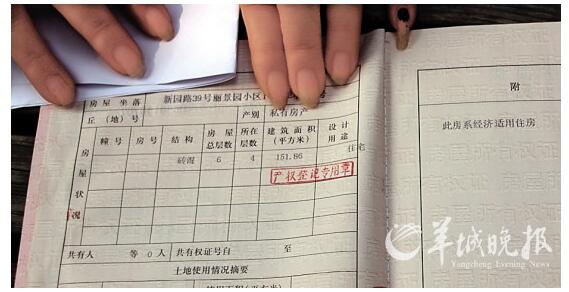 房屋坐落 新园路39号丽景园小区
丘（地）号 产别 私有房产
幢号 房号 结构 房屋总层数 所在层数 建筑面积（平方米） 设计用途
房屋状况
砖混 6 4 151.86 住宅
产权登记专用章
共有人 等0人 共有权证号自 至
土地使用情况摘要
附
此房系经济适用住房
羊城晚报
Yangcheng Evening News